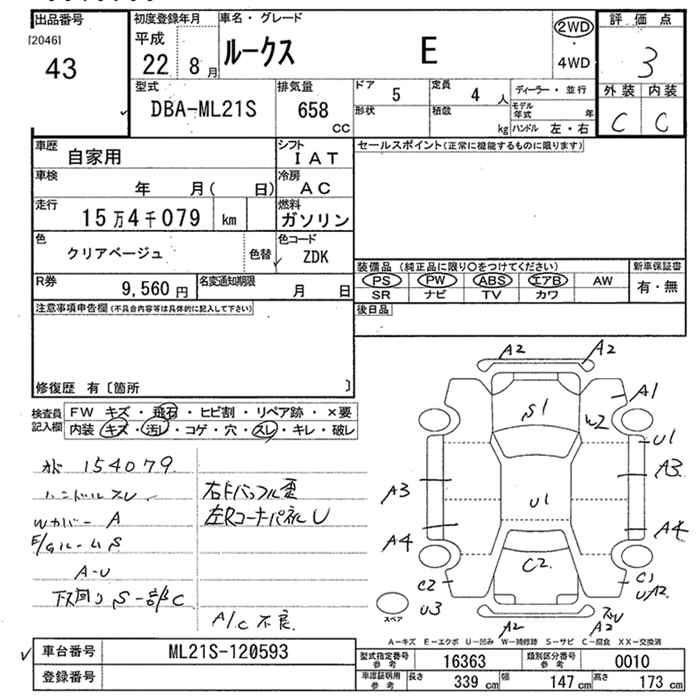 出品番号 初度登録年月 車名・グレード 評価点
[2046] 平成 2WD
43 22 8月 ルークス E ・ 3
4WD
型式 排気量 ドア 5 定員 4人 ディーラー・並行 外装 内装
DBA-ML21S 658 CC 形状 積載 kg モデル年式 年 C C
ハンドル 左・右
車歴 自家用 シフト IAT セールスポイント(正常に機能するものに限ります)
車検 年 月( 日) 冷房 AC
走行 15万4千079 km 燃料 ガソリン
色 クリアベージュ 色替 色コード ZDK
装備品 (純正品に限り〇をつけてください) 新車保証書
R券 9,560円 名変通知期限 月 日 PS PW ABS エアB AW 有・無
SR ナビ TV カワ
注意事項申告欄(不具合内容等は具体的に記入して下さい) 後日品
修復歴 有〔箇所 〕
検査員記入欄 FW キズ・飛石・ヒビ割・リペア跡・×要
内装 キズ・汚レ・コゲ・穴・スレ・キレ・破レ
A2 A2
A1
S1 W2
U1
A3 A3
U1
A4 A4
C2 C2 C1
U3 UA2
スペア
A2 A2 スレ
154079
ハンドルスレ 右Fバッフル歪
Wカバー A 左RコーナーパネルU
E/gルームS
A-U
下回りS一部C
A/C不良
A-キズ E-エクボ U-凹み W-補修跡 S-サビ C-腐食 XX-交換済
車台番号 ML21S-120593 型式指定番号 参考 16363 類別区分番号 参考 0010
登録番号 車庫証明用 参考 長さ 339cm 幅 147cm 高さ 173cm